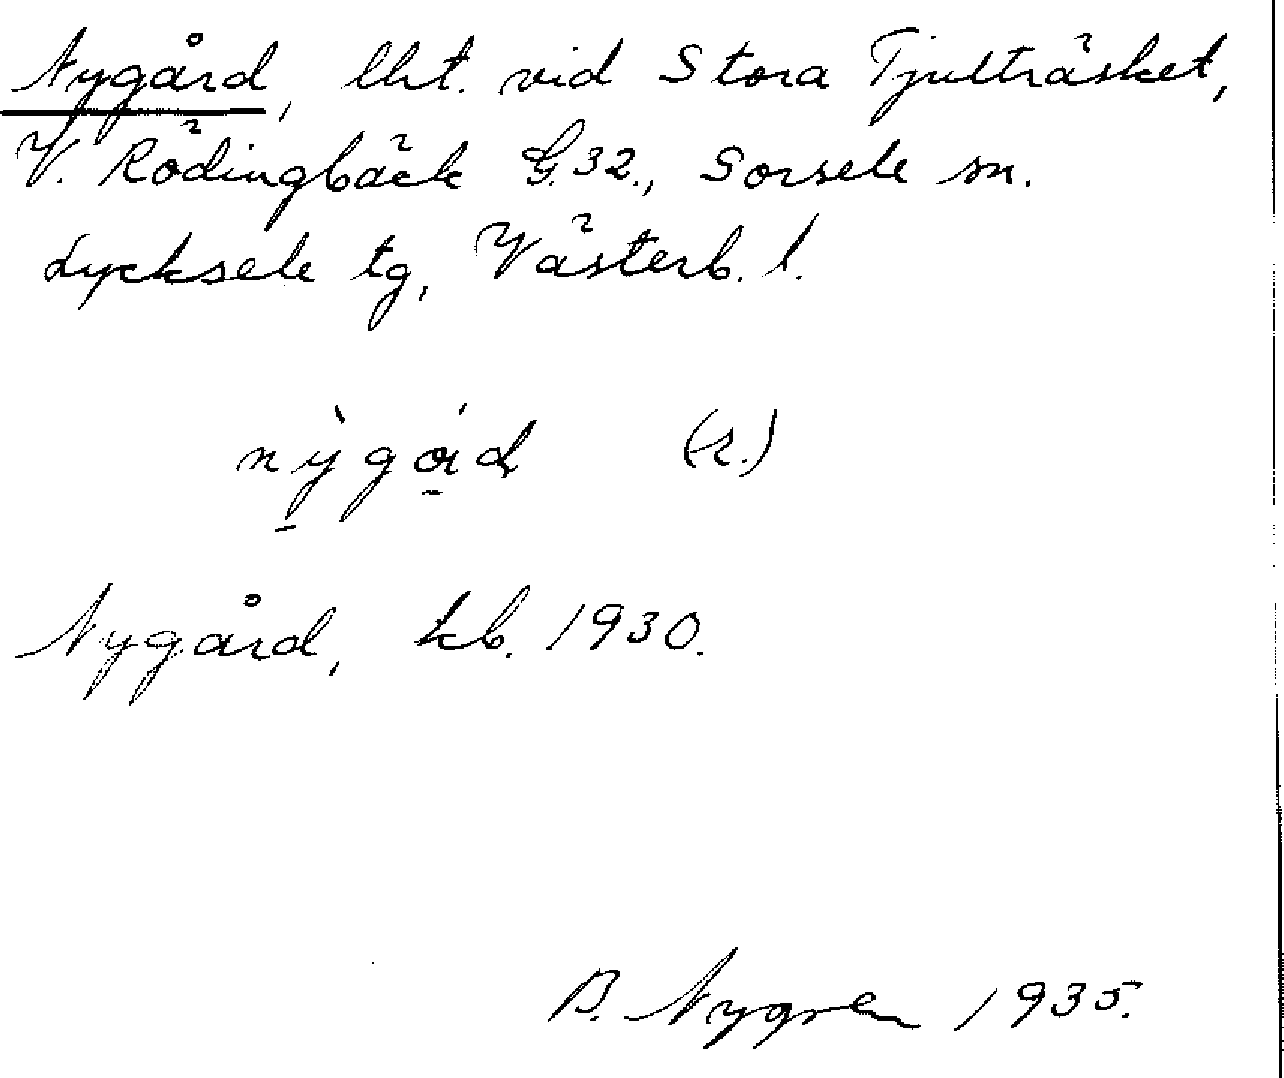 Nygård, lht. vid Stora Tjulträsket,
V. Rödingbäck G.32., Sorsele sn.
Lycksele tg, Västerb. l.
(r.)
Nygård, kb. 1930.
B. Nygren 1935.